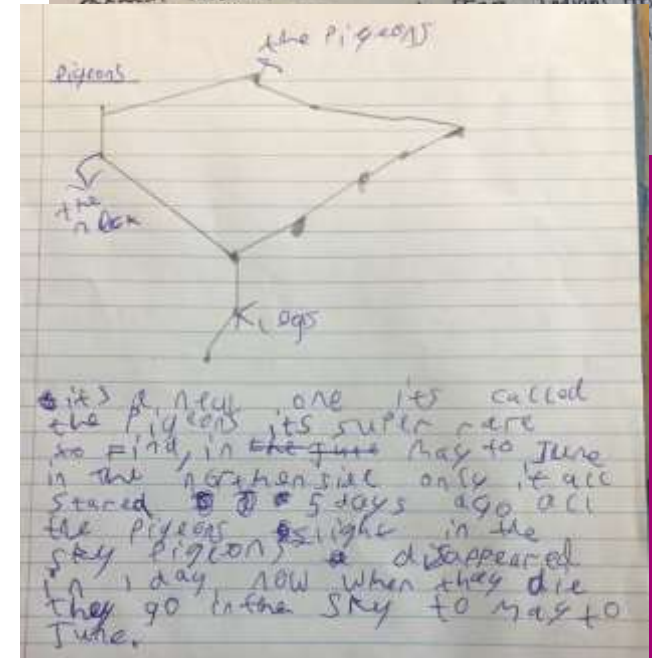 the Pigeons
Pigeons
the
neck
Legs
its a new one its called
the Pigeons its super rare
to Find, in the June May to June
in the northen side only it all
stared 5 days ago all
the Pigeons light in the
sky Pigeons disappeared
in 1 day, now when they die
they go in the sky to May to
June.